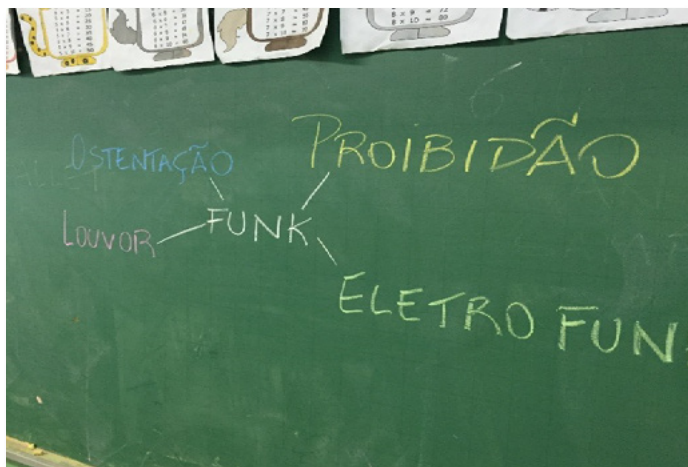 OSTENTAÇÃO
PROIBIDÃO
LOUVOR
FUNK
ELETRO FUN